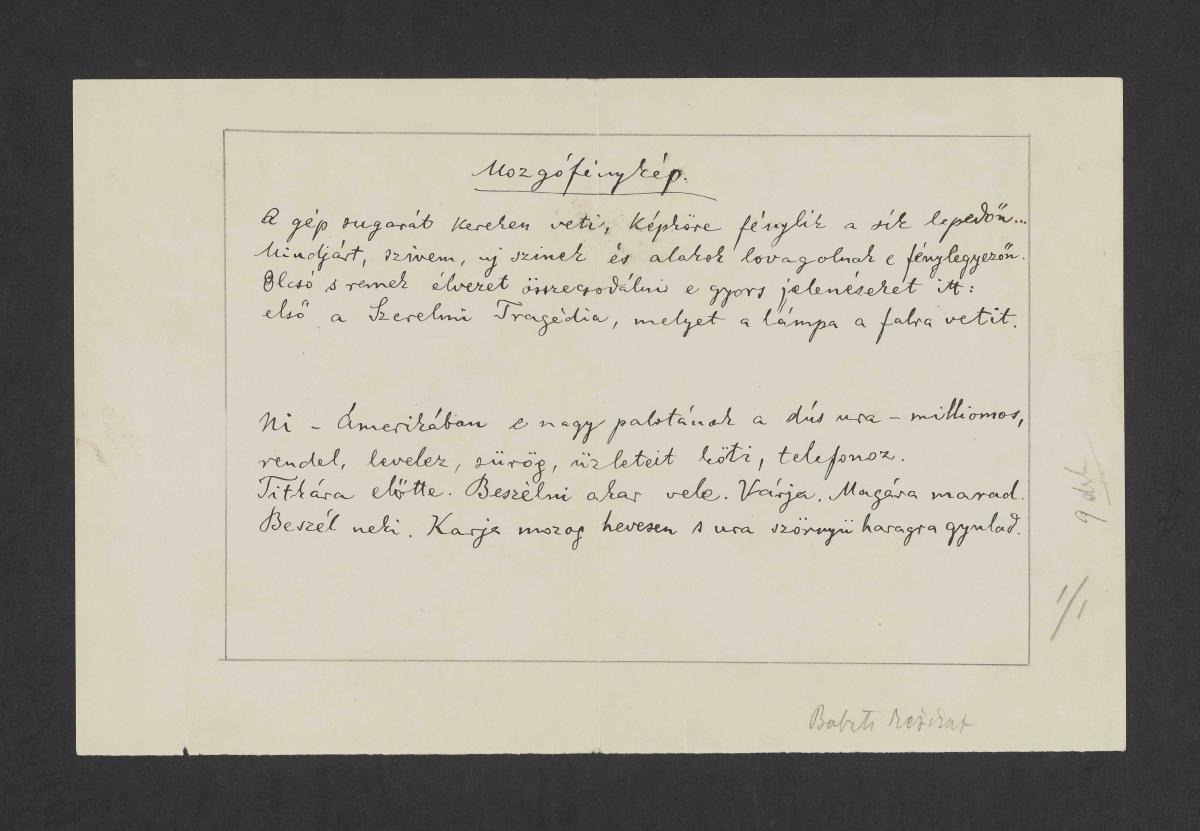 Mozgófénykép.
A gép sugarát kereken veti, képköre fénylik a sík lepedőn...
Mindjárt, szivem, uj szinek és alakok lovagolnak e fénylegyezőn.
Olcsó s remek élvezet összecsodálni e gyors jelenéseket itt:
első a Szerelmi Tragédia, melyet a lámpa a falra vetit.
Ni – Amerikában e nagy palotának a dús ura – milliomos,
rendel, levelez, sürög, üzleteit köti, telefonoz.
Titkára előtte. Beszélni akar vele. Várja. Magára marad.
Beszél neki. Karja mozog hevesen s ura szörnyü haragra gyulad.
1/1
Babits kézirat